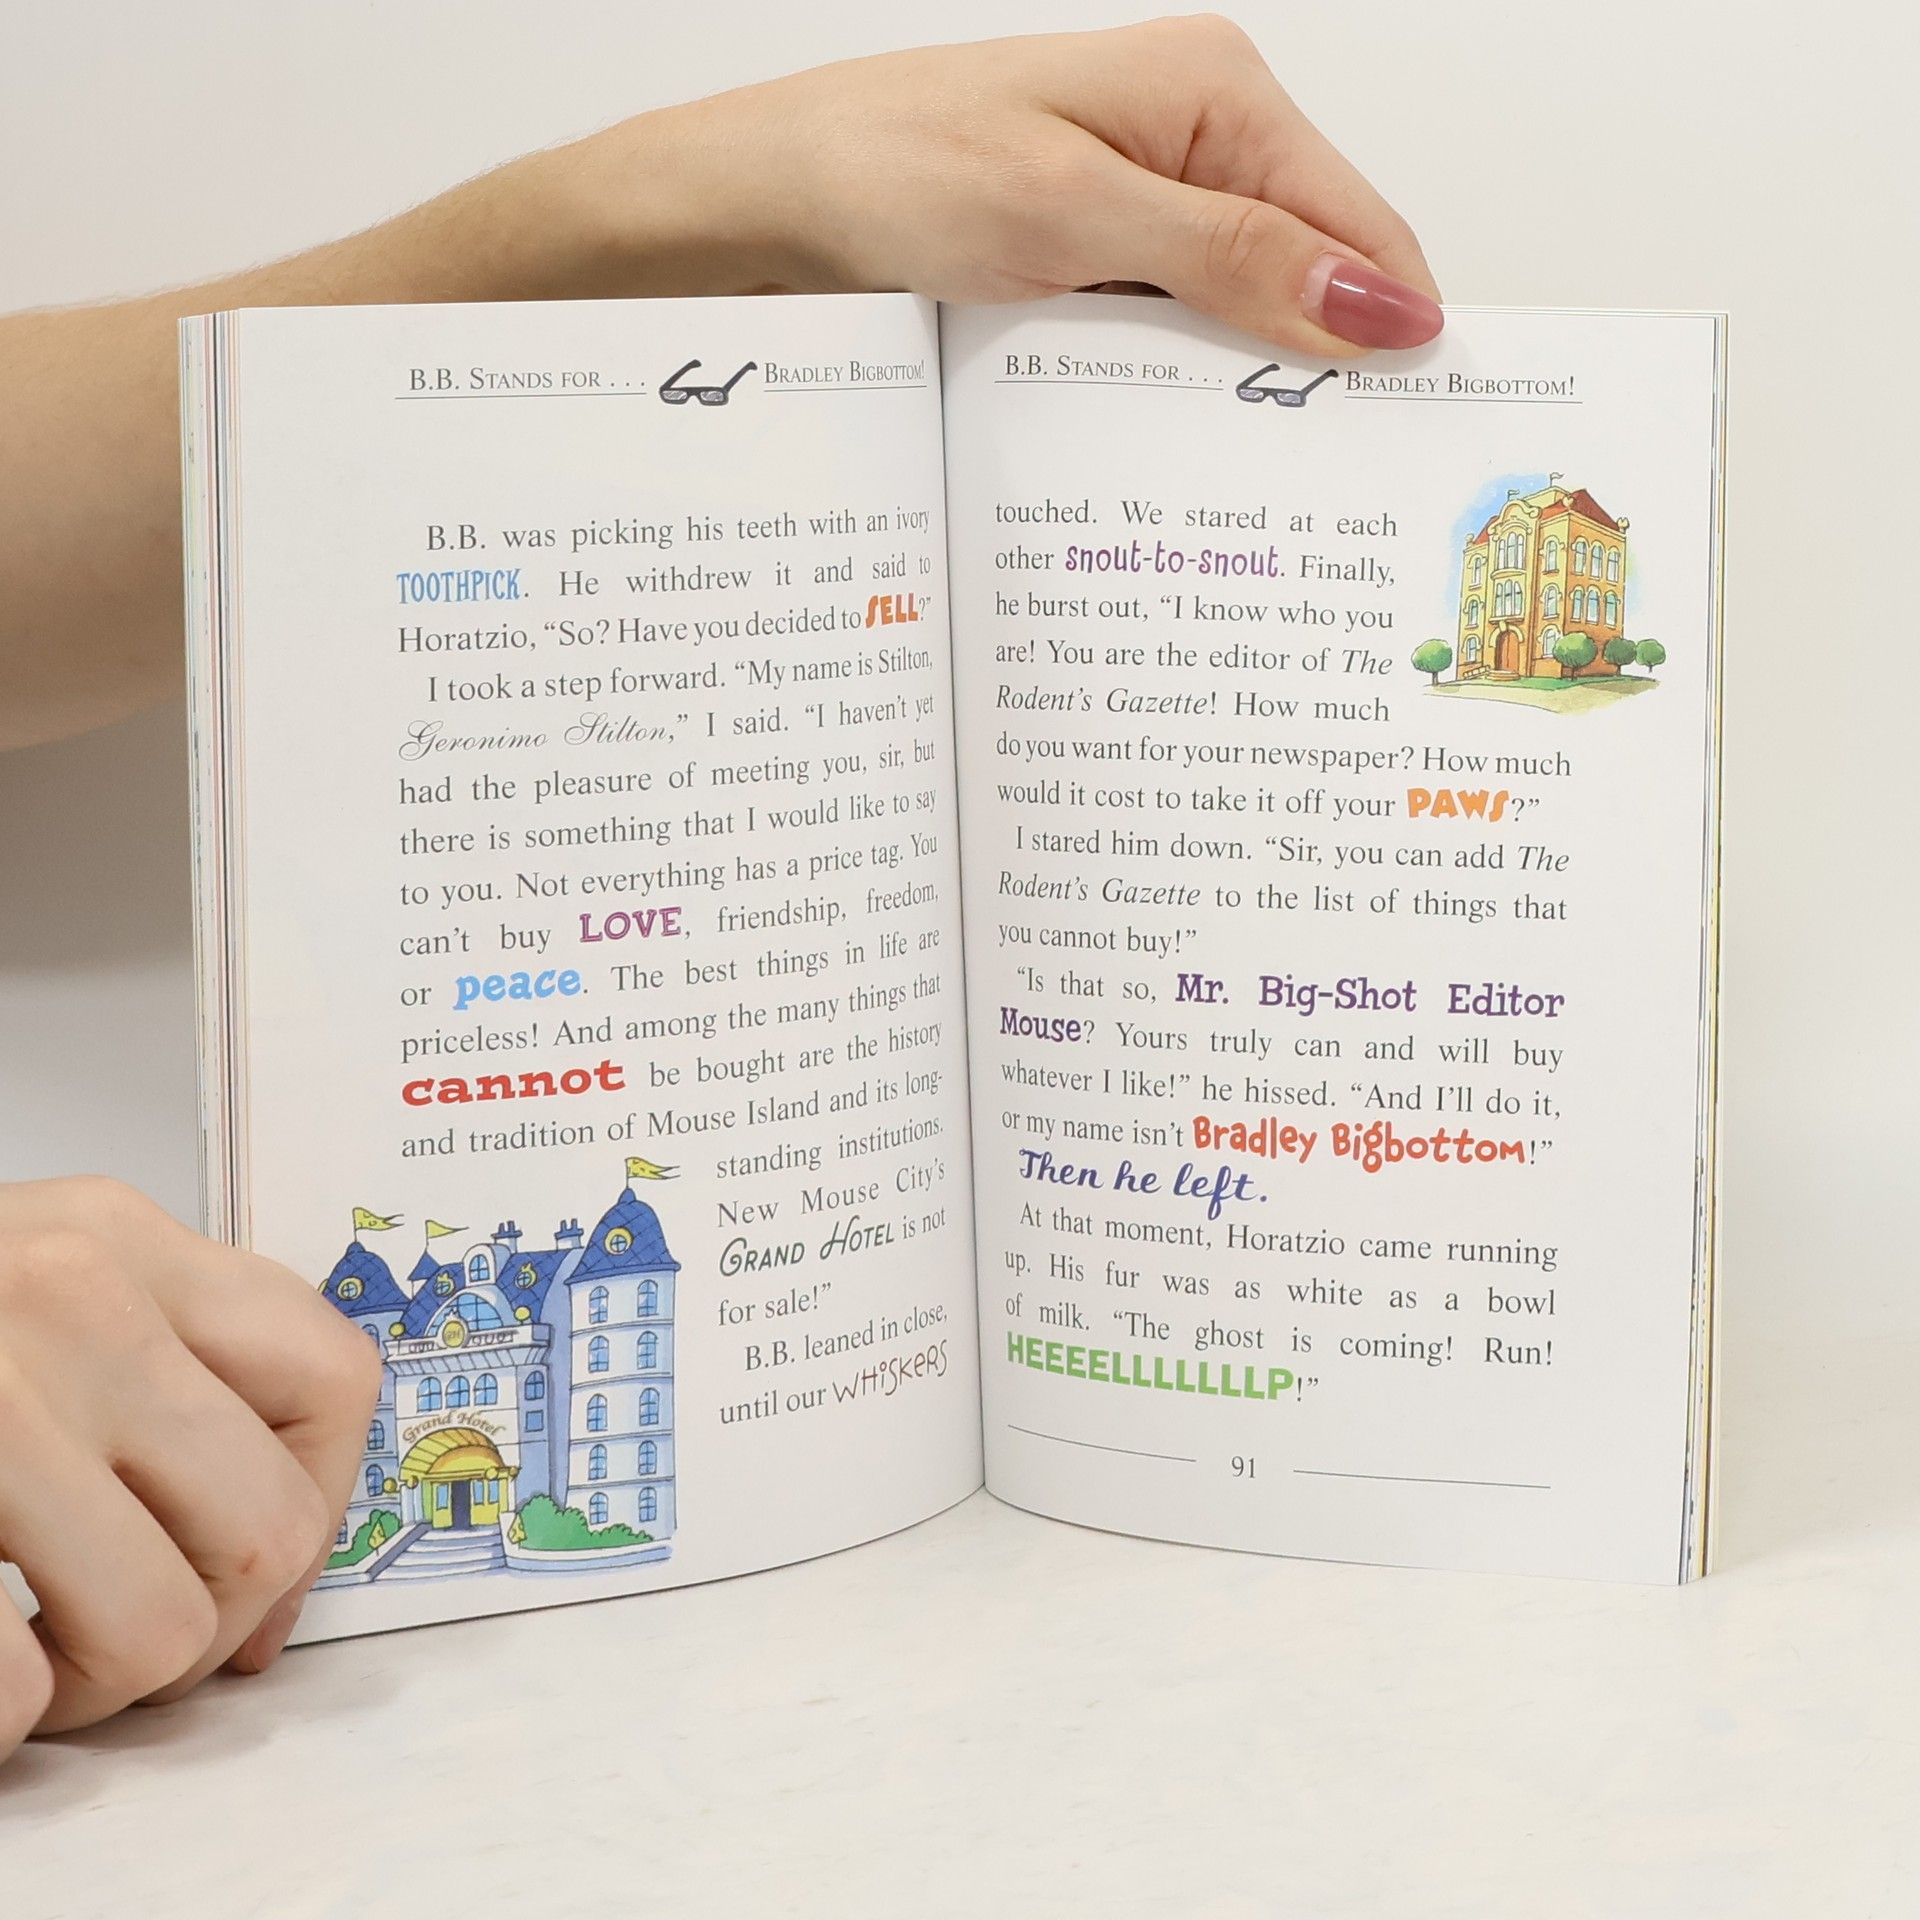 B.B. STANDS FOR . . . BRADLEY BIGBOTTOM!
B.B. was picking his teeth with an ivory
TOOTHPICK. He withdrew it and said to
Horatzio, “So? Have you decided to SELL?”
I took a step forward. “My name is Stilton,
Geronimo Stilton,” I said. “I haven’t yet
had the pleasure of meeting you, sir, but
there is something that I would like to say
to you. Not everything has a price tag. You
can’t buy LOVE, friendship, freedom,
or peace. The best things in life are
priceless! And among the many things that
cannot be bought are the history
and tradition of Mouse Island and its long-
standing institutions.
New Mouse City’s
GRAND HOTEL is not
for sale!”
B.B. leaned in close,
until our WHiSKeRS
GH
Grand Hotel
B.B. STANDS FOR . . . BRADLEY BIGBOTTOM!
touched. We stared at each
other snout-to-snout. Finally,
he burst out, “I know who you
are! You are the editor of The
Rodent’s Gazette! How much
do you want for your newspaper? How much
would it cost to take it off your PAWS?”
I stared him down. “Sir, you can add The
Rodent’s Gazette to the list of things that
you cannot buy!”
“Is that so, Mr. Big-Shot Editor
Mouse? Yours truly can and will buy
whatever I like!” he hissed. “And I’ll do it,
or my name isn’t Bradley Bigbottom!”
Then he left.
At that moment, Horatzio came running
up. His fur was as white as a bowl
of milk. “The ghost is coming! Run!
HEEEELLLLLLLP!”
91